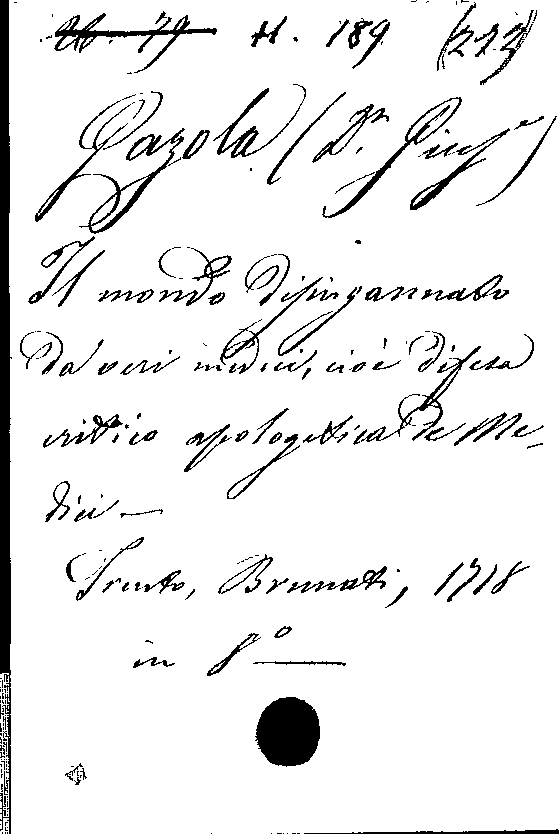 Ub. 79 H. 189 (222)
Gazola (Dr. Giuse)
Il mondo disingannato
da' veri medici, cioè difesa
critico apologetica de Me-
dici —
Trento, Brunati, 1718
in 8º —